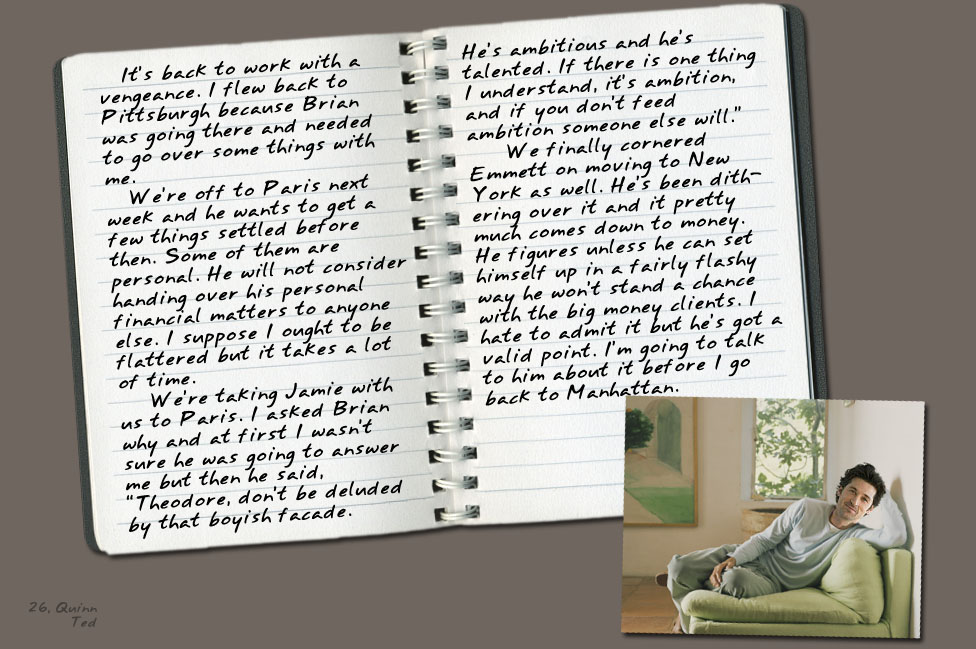 It's back to work with a
vengeance. I flew back to
Pittsburgh because Brian
was going there and needed
to go over some things with
me.
We're off to Paris next
week and he wants to get a
few things settled before
then. Some of them are
personal. He will not consider
handing over his personal
financial matters to anyone
else. I suppose I ought to be
flattered but it takes a lot
of time.
We're taking Jamie with
us to Paris. I asked Brian
why and at first I wasn't
sure he was going to answer
me but then he said,
"Theodore, don't be deluded
by that boyish facade.
He's ambitious and he's
talented. If there is one thing
I understand, it's ambition,
and if you don't feed
ambition someone else will."
We finally cornered
Emmett on moving to New
York as well. He's been dith-
ering over it and it pretty
much comes down to money.
He figures unless he can set
himself up in a fairly flashy
way he won't stand a chance
with the big money clients. I
hate to admit it but he's got a
valid point. I'm going to talk
to him about it before I go
back to Manhattan.
26, Quinn
Ted